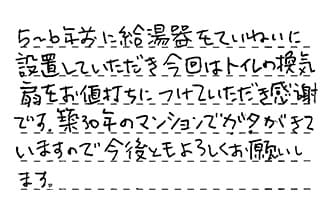 5〜6年前に給湯器をていねいに
設置していただき今回はトイレの換気
扇をお値打ちにつけていただき感謝
です。築30年のマンションでガタがきて
いますので今後ともよろしくお願いし
ます。